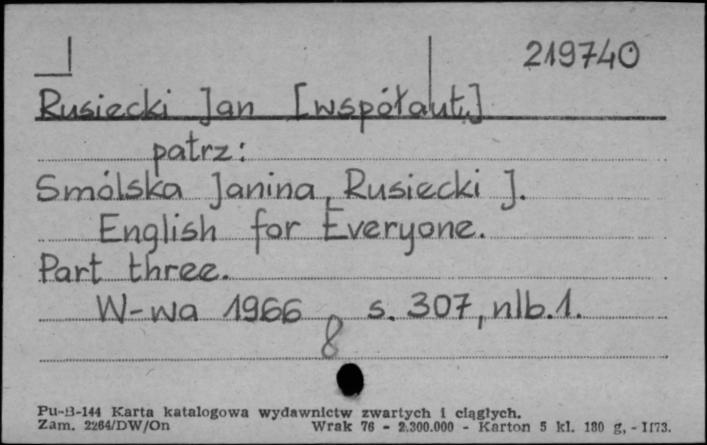 219740
Rusiecki Jan [współaut.]
patrz:
Smólska Janina, Rusiecki J.
English for Everyone.
Part three.
W-wa 1966 s. 307, nlb.1.
8
Pu-B-144 Karta katalogowa wydawnictw zwartych i ciągłych.
Zam. 2264/DW/On Wrak 76 - 2.300.000 - Karton 5 kl. 180 g, - 1173.